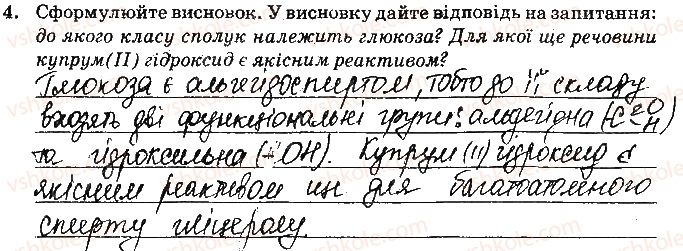 4. Сформулюйте висновок. У висновку дайте відповідь на запитання:
до якого класу сполук належить глюкоза? Для якої ще речовини
купрум(ІІ) гідроксид є якісним реактивом?
Глюкоза є альдегідоспиртом, тобто до її складу
входять дві функціональні групи: альдегідна (-C=O H)
та гідроксильна (-OH). Купрум (ІІ) гідроксид є
якісним реактивом ще для багатоатомного
спирту гліцеролу.